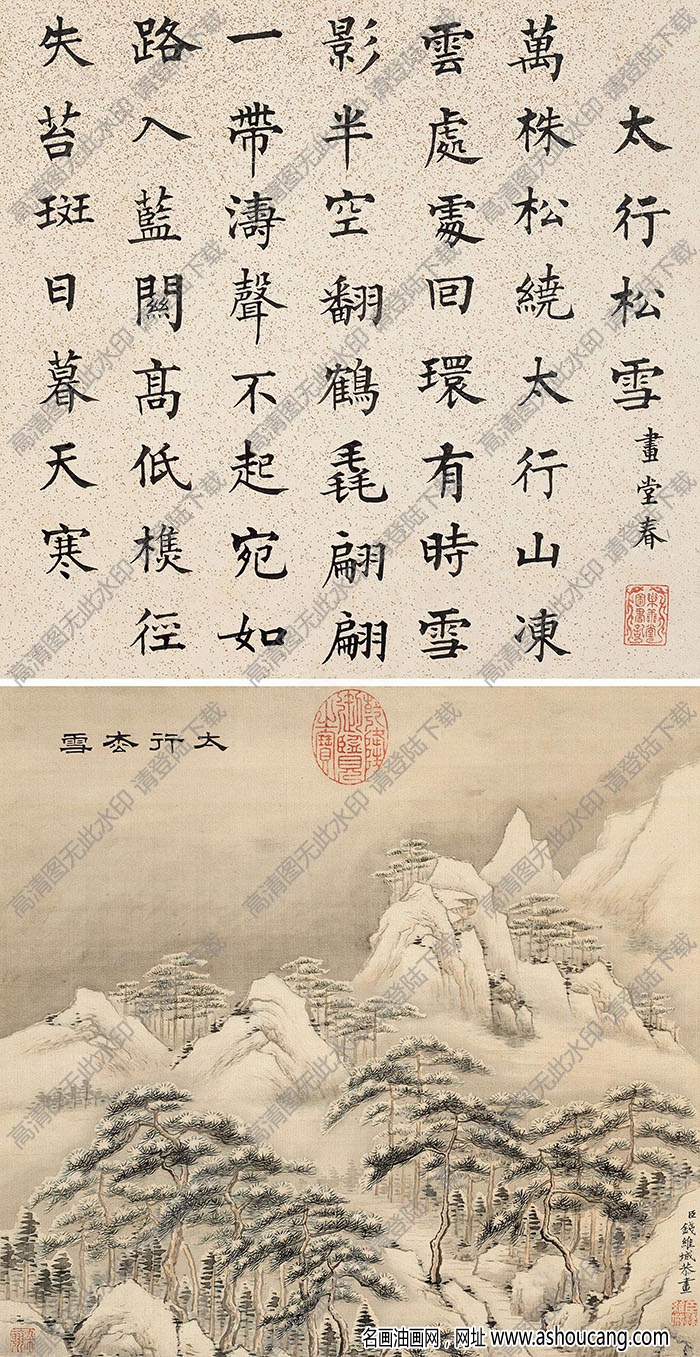 太行松雪 畫堂春
萬株松繞太行山凍
雲處處回環有時雪
影半空翻鶴毳翩翩
一帶濤聲不起宛如
路入藍關高低樵徑
失苔斑日暮天寒
太行枩雪
乾隆御覽之寶
臣錢維城恭畫
高清图无此水印 请登陆下载
名画油画网，网址 www.ashoucang.com